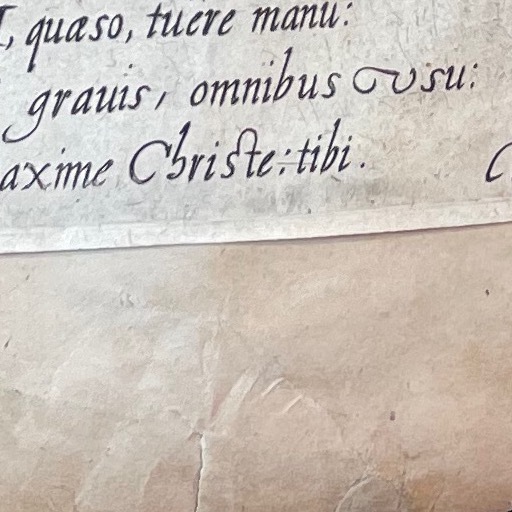 , quæso, tuere manu:
grauis, omnibus vsu:
axime Christe: tibi. C